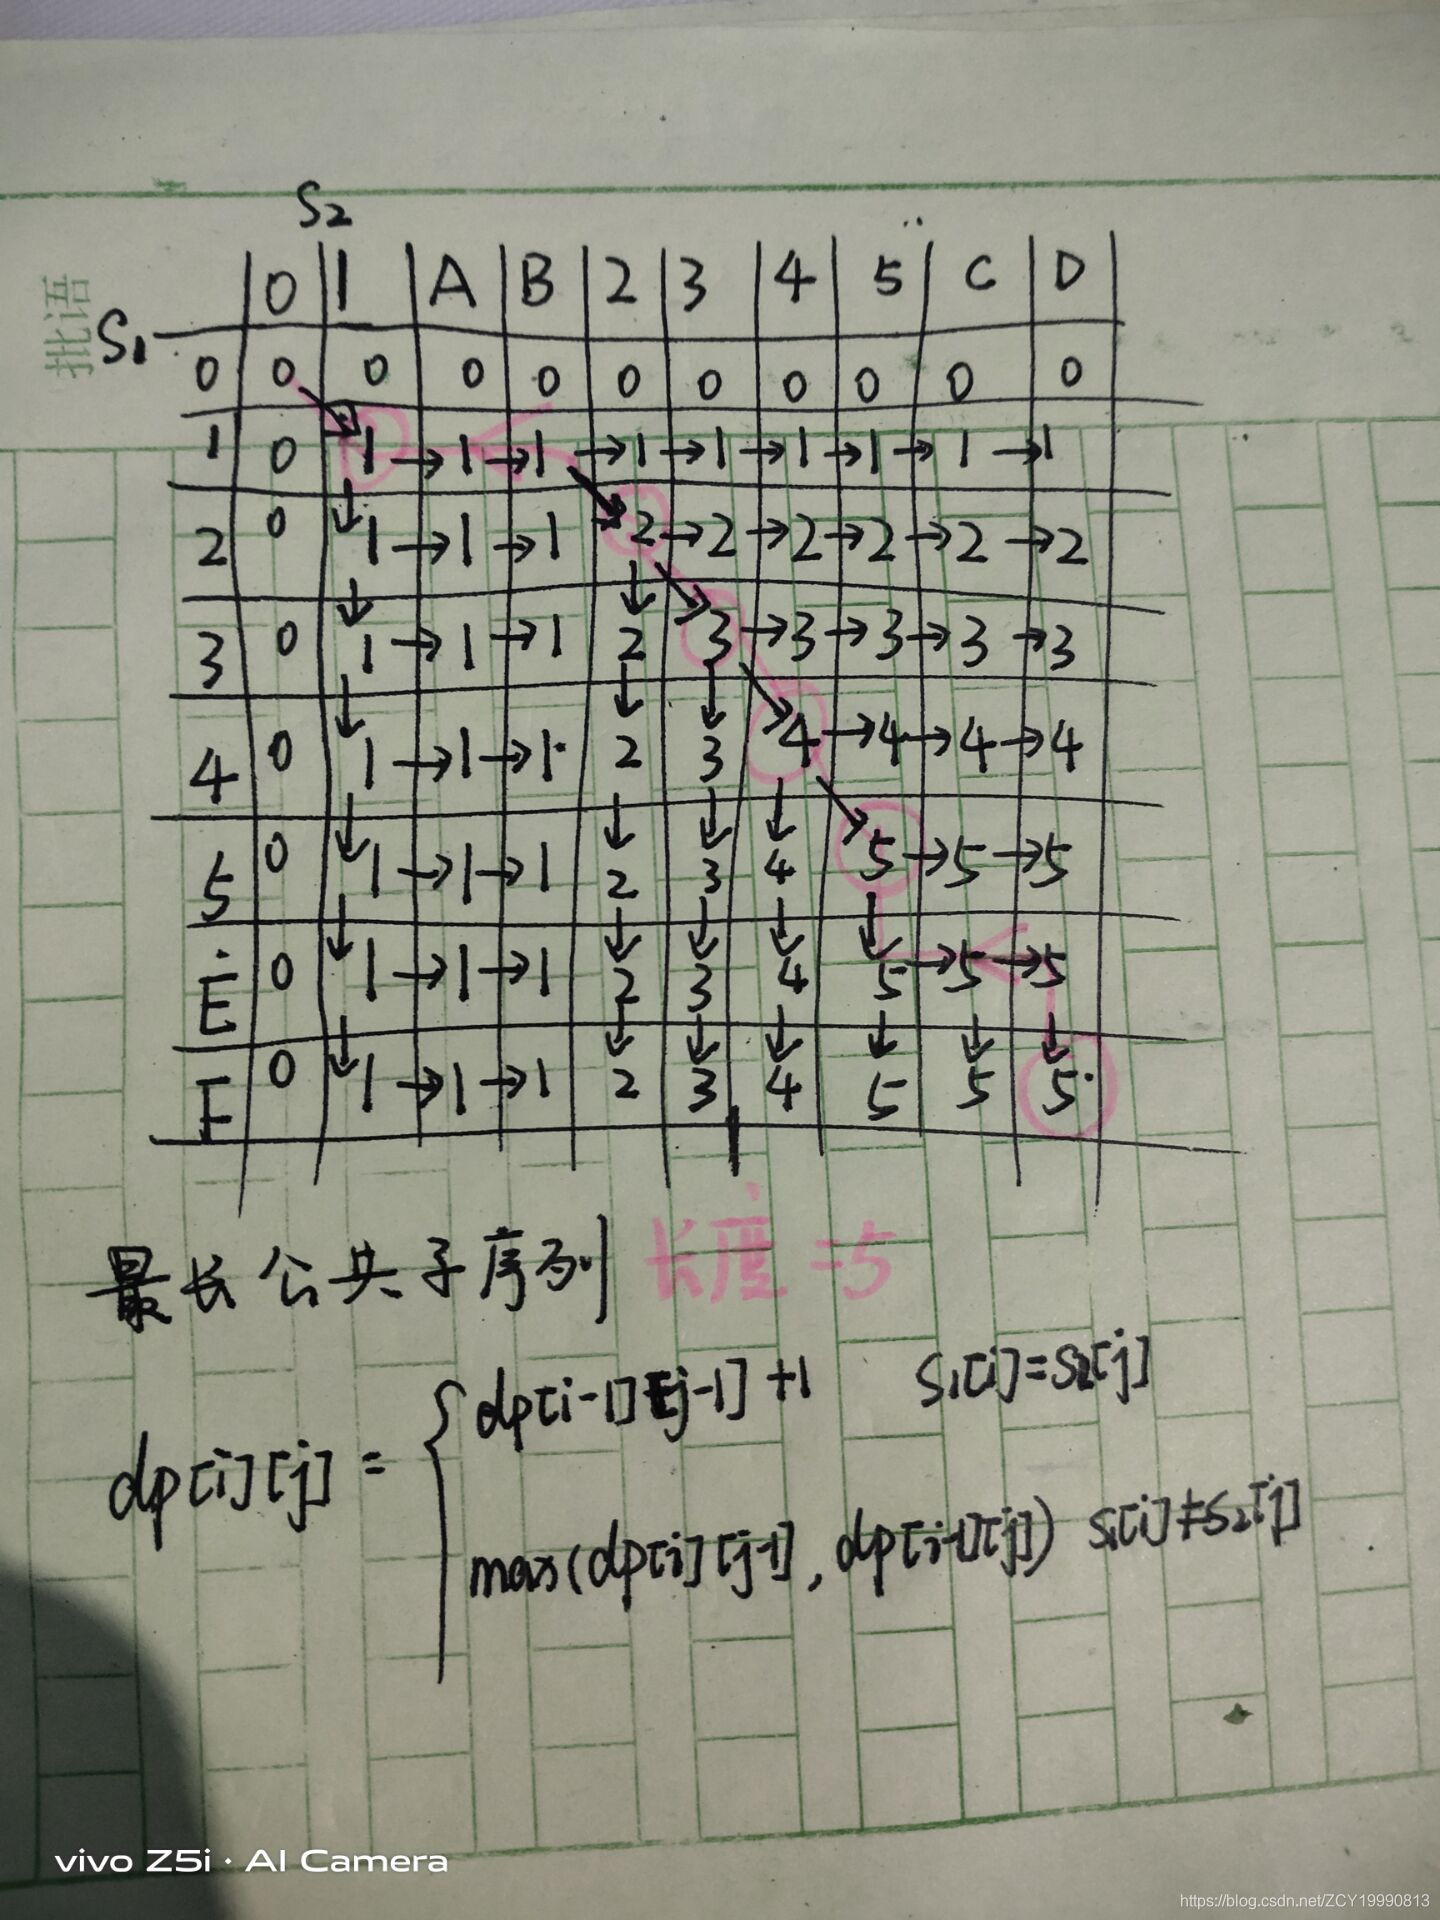 S2
批语
0 1 A B 2 3 4 5 C D
S1
0 0 0 0 0 0 0 0 0 0 0
1 0 1→1→1→1→1→1→1→1→1
2 0 1→1→1 2→2→2→2→2→2
3 0 1→1→1 2 3→3→3→3→3
4 0 1→1→1 2 3 4→4→4→4
5 0 1→1→1 2 3 4 5→5→5
E 0 1→1→1 2 3 4 5→5→5
F 0 1→1→1 2 3 4 5 5 5
最长公共子序列 长度=5
dp[i-1][j-1]+1 S1[i]=S2[j]
dp[i][j]=
max(dp[i][j-1], dp[i-1][j]) S1[i]≠S2[j]
vivo Z5i · AI Camera
https://blog.csdn.net/ZCY19990813